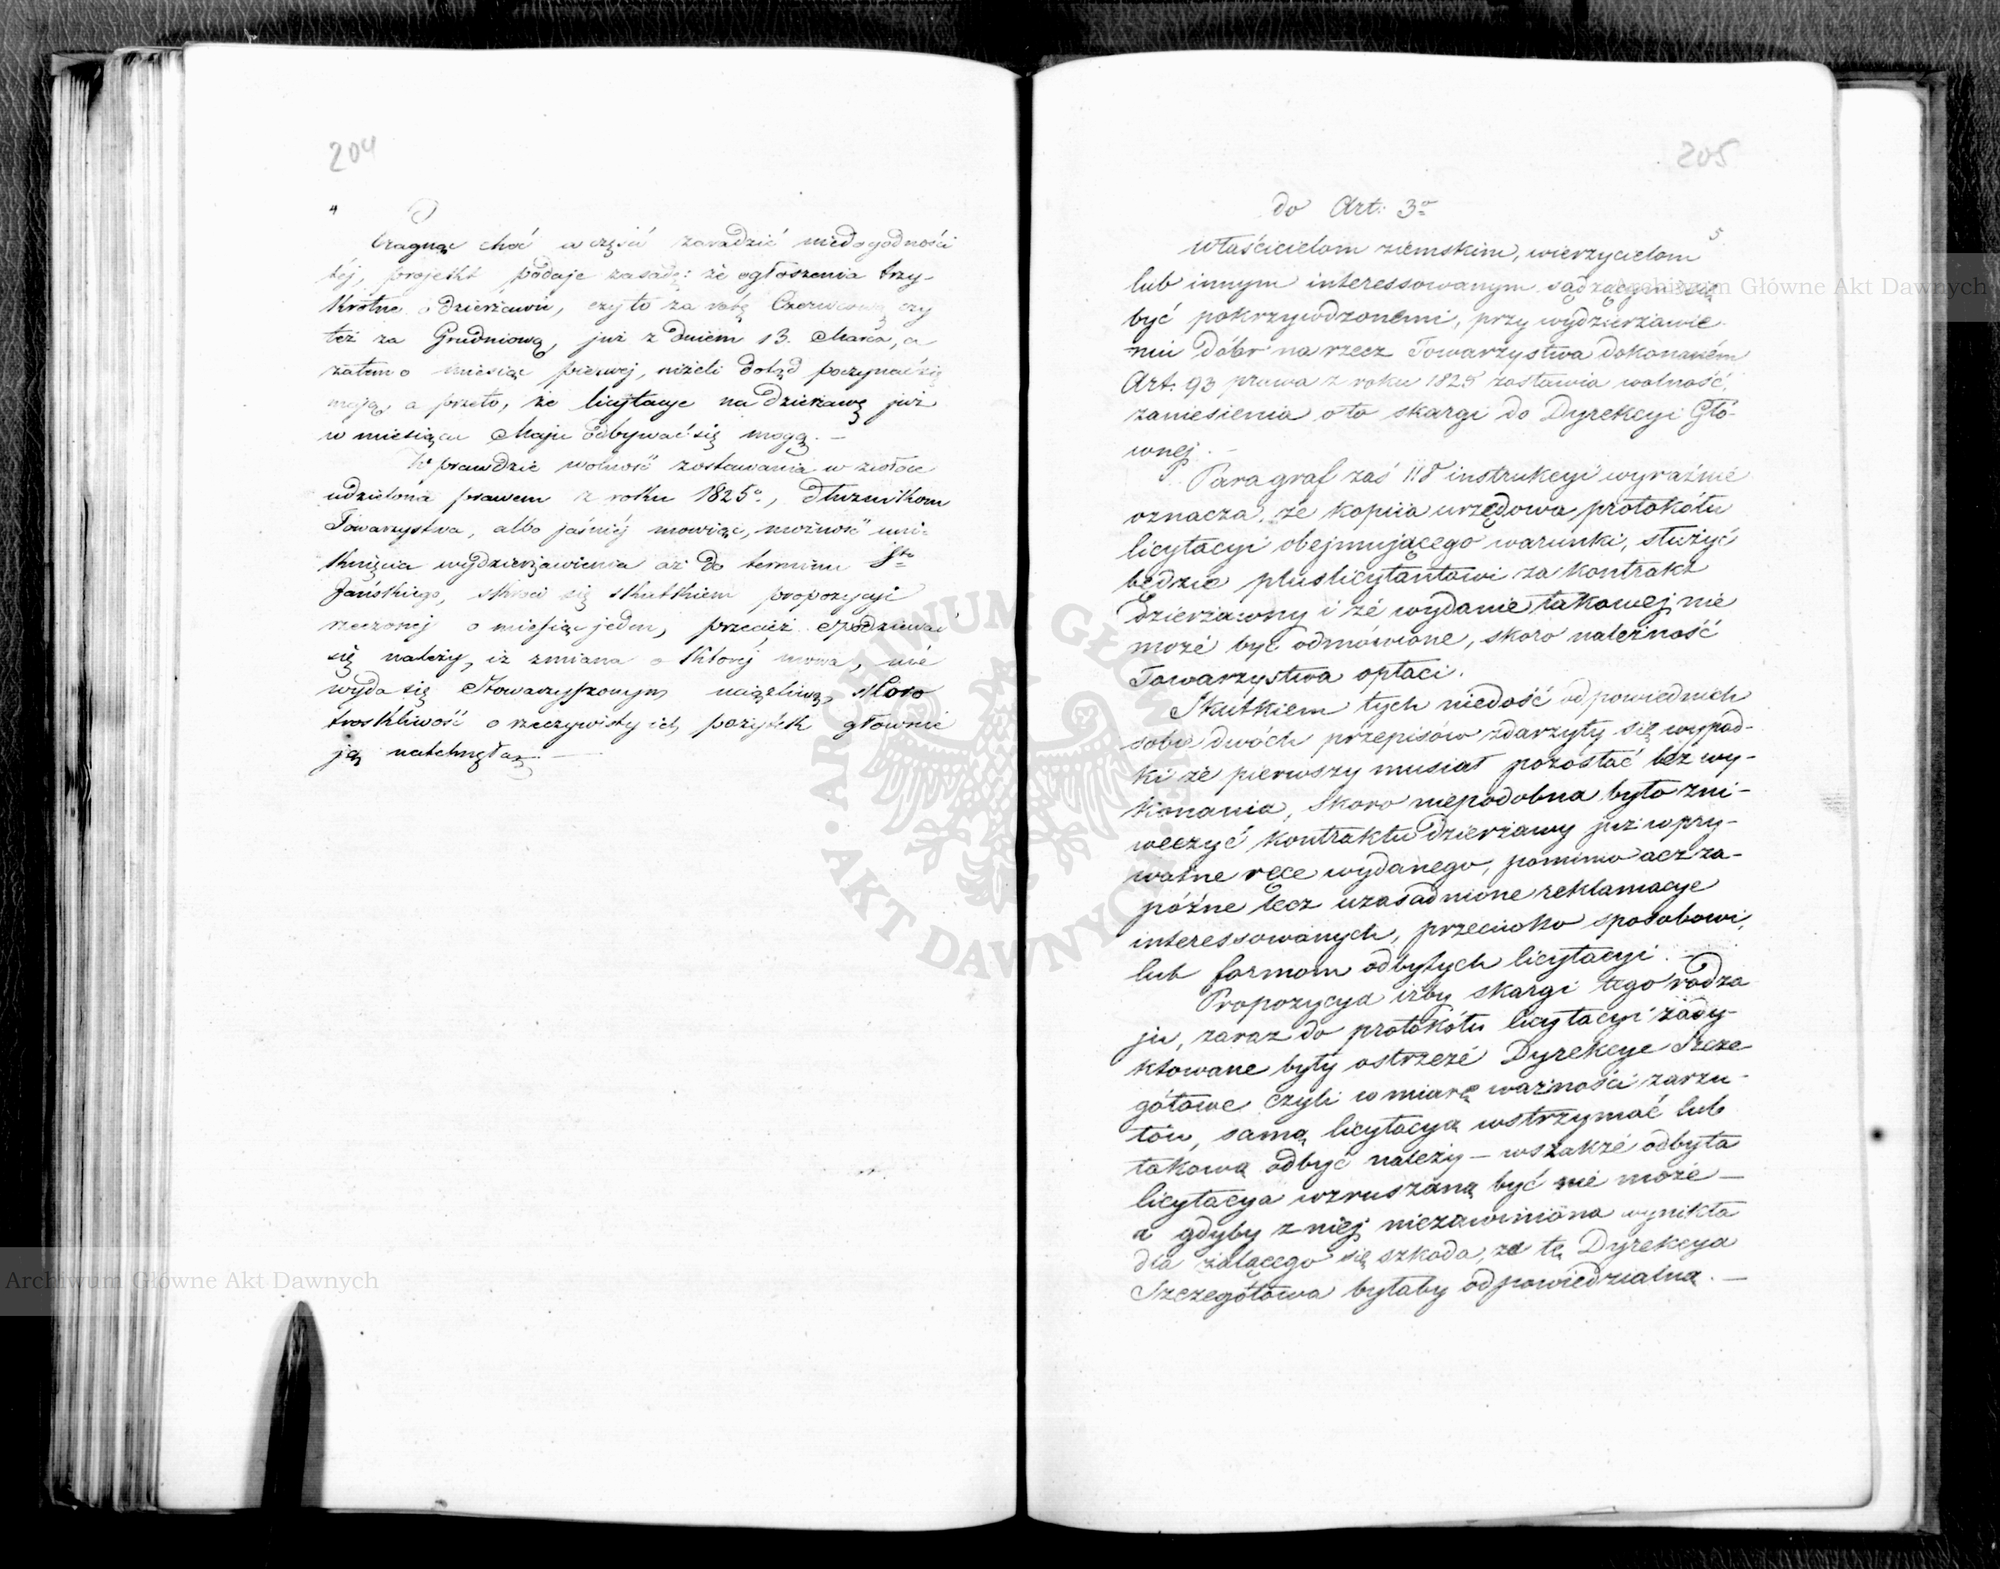 204
4
Pragnąc choć w części zaradzić niedogodności
téj, projekt podaje zasadę: że ogłoszenia trzy-
krotne o dzierżawie, czy to za ratę Czerwcową czy
też za Grudniową, już z dniem 13. Marca, a
zatem o miesiąc pierwej, niżeli dotąd poczynać się
mają, a przeto, że licytacye na dzierżawę już
w miesiącu Maju odbywać się mogą. —
W prawdzie wolność zostawania w zwłoce
udzielona prawem z roku 1825º, dłużnikom
Towarzystwa, albo jaśniéj mowiąc, możność uni-
knięcia wydzierżawienia aż do terminu Sto
Jańskiego, skróci się skutkiem propozycyi
rzeczonej o miesiąc jeden, przecież spodziewać
się należy, iż zmiana o któréj mowa, nie
wyda się Stowarzyszonym uciążliwą, skoro
troskliwość o rzeczywisty ich pożytek głównie
ją natchnęła. —
205
do Art: 3º
5
Właścicielom ziemskim, wierzycielom
lub innym interessowanym sądzącym się
być pokrzywdzonemi, przy wydzierżawie-
niu Dóbr na rzecz Towarzystwa dokonaném
Art. 93 prawa z roku 1825 zostawia wolność,
zaniesienia o to skargi do Dyrekcyi Głó-
wnej. —
Paragraf zaś 118 instrukcyi wyraźnie
oznacza, że kopiia urzędowa protokółu
licytacyi obejmującego warunki, służyć
będzie pluslicytantowi za kontrakt
dzierżawny i że wydanie takowej nie
może być odmówione, skoro należność
Towarzystwa opłaci.
Skutkiem tych niedość odpowiednich
sobie dwóch przepisów zdarzyły się wypad-
ki że pierwszy musiał pozostać bez wy-
konania, skoro niepodobna było zni-
weczyć kontraktu dzierżawy już w pry-
watne ręce wydanego, pomimo acz za-
późne lecz uzasadnione reklamacye
interessowanych, przeciwko sposobowi,
lub formom odbytych licytacyi. —
Propozycya iżby skargi tego rodza
ju, zaraz do protokółu licytacyi zady-
ktowane były ostrzeże Dyrekcye Szcze-
gółowe czyli w miarę ważności zarzu-
tów, samą licytacyą wstrzymać lub
takową odbyć należy — wszakże odbyta
licytacya wzruszaną być nie może —
a gdyby z niej niezawiniona wynikła
dla żalącego się szkoda, za tę Dyrekcya
Szczegółowa byłaby odpowiedzialną. —
Archiwum Główne Akt Dawnych
Archiwum Główne Akt Dawnych
ARCHIWUM GŁÓWNE
AKT DAWNYCH